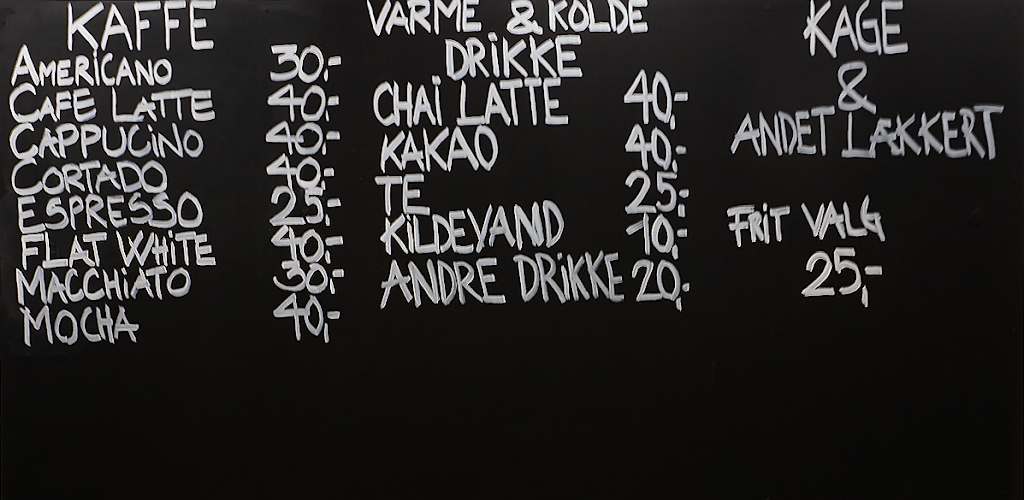 KAFFE
AMERICANO 30,-
CAFE LATTE 40,-
CAPPUCINO 40,-
CORTADO 40,-
ESPRESSO 25,-
FLAT WHITE 40,-
MACCHIATO 30,-
MOCHA 40,-
VARME & KOLDE
DRIKKE
CHAI LATTE 40,-
KAKAO 40,-
TE 25,-
KILDEVAND 10,-
ANDRE DRIKKE 20,-
KAGE
&
ANDET LÆKKERT
FRIT VALG
25,-